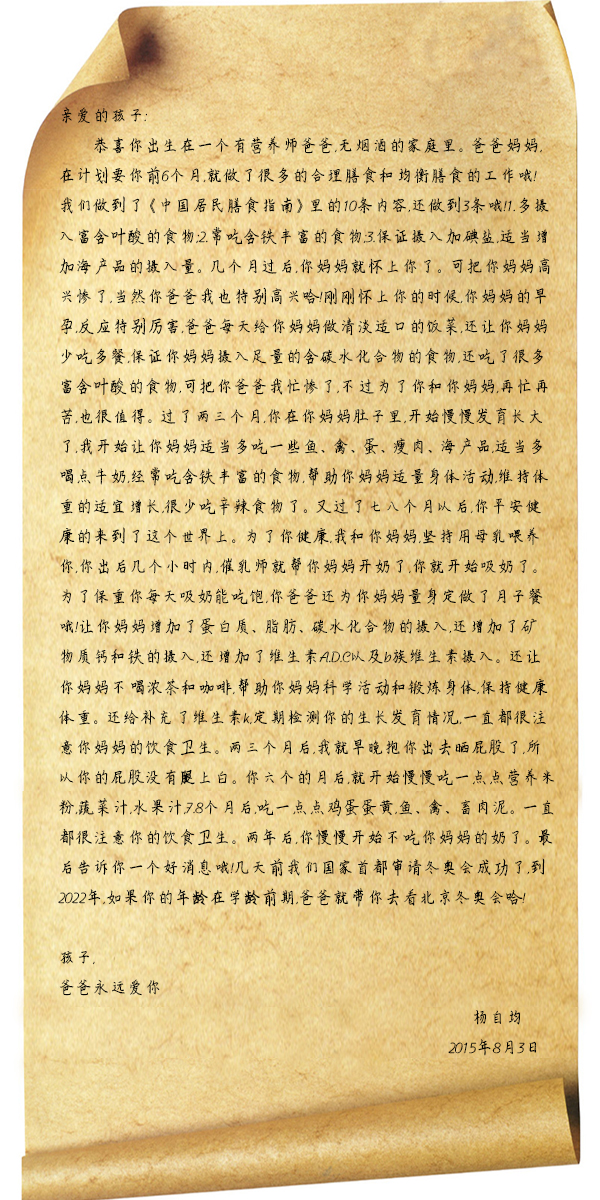 亲爱的孩子:
恭喜你出生在一个有营养师爸爸,无烟酒的家庭里。爸爸妈妈,
在计划要你前6个月,就做了很多的合理膳食和均衡膳食的工作哦!
我们做到了《中国居民膳食指南》里的10条内容,还做到3条哦!1.多摄
入富含叶酸的食物;2.常吃含铁丰富的食物;3.保证摄入加碘盐,适当增
加海产品的摄入量。几个月过后,你妈妈就怀上你了。可把你妈妈高
兴惨了,当然你爸爸我也特别高兴哈!刚刚怀上你的时候,你妈妈的早
孕,反应特别厉害,爸爸每天给你妈妈做清淡适口的饭菜,还让你妈妈
少吃多餐,保证你妈妈摄入足量的含碳水化合物的食物,还吃了很多
富含叶酸的食物,可把你爸爸我忙惨了,不过为了你和你妈妈,再忙再
苦,也很值得。过了两三个月,你在你妈妈肚子里,开始慢慢发育长大
了,我开始让你妈妈适当多吃一些鱼、禽、蛋、瘦肉、海产品,适当多
喝点牛奶,经常吃含铁丰富的食物,帮助你妈妈适量身体活动,维持体
重的适宜增长,很少吃辛辣食物了。又过了七八个月以后,你平安健
康的来到了这个世界上。为了你健康,我和你妈妈,坚持用母乳喂养
你,你出后几个小时内,催乳师就帮你妈妈开奶了,你就开始吸奶了。
为了保重你每天吸奶能吃饱,你爸爸还为你妈妈量身定做了月子餐
哦!让你妈妈增加了蛋白质、脂肪、碳水化合物的摄入,还增加了矿
物质钙和铁的摄入,还增加了维生素A.D.C以及b族维生素摄入。还让
你妈妈不喝浓茶和咖啡,帮助你妈妈科学活动和锻炼身体,保持健康
体重。还给补充了维生素k,定期检测你的生长发育情况,一直都很注
意你妈妈的饮食卫生。两三个月后,我就早晚抱你出去晒屁股了,所
以你的屁股没有腿上白。你六个的月后,就开始慢慢吃一点点营养米
粉,蔬菜汁,水果汁,7.8个月后,吃一点点鸡蛋蛋黄,鱼、禽、畜肉泥。一直
都很注意你的饮食卫生。两年后,你慢慢开始不吃你妈妈的奶了。最
后告诉你一个好消息哦!几天前我们国家首都审请冬奥会成功了,到
2022年,如果你的年龄在学龄前期,爸爸就带你去看北京冬奥会哈!
孩子,
爸爸永远爱你
杨自均
2015年8月3日